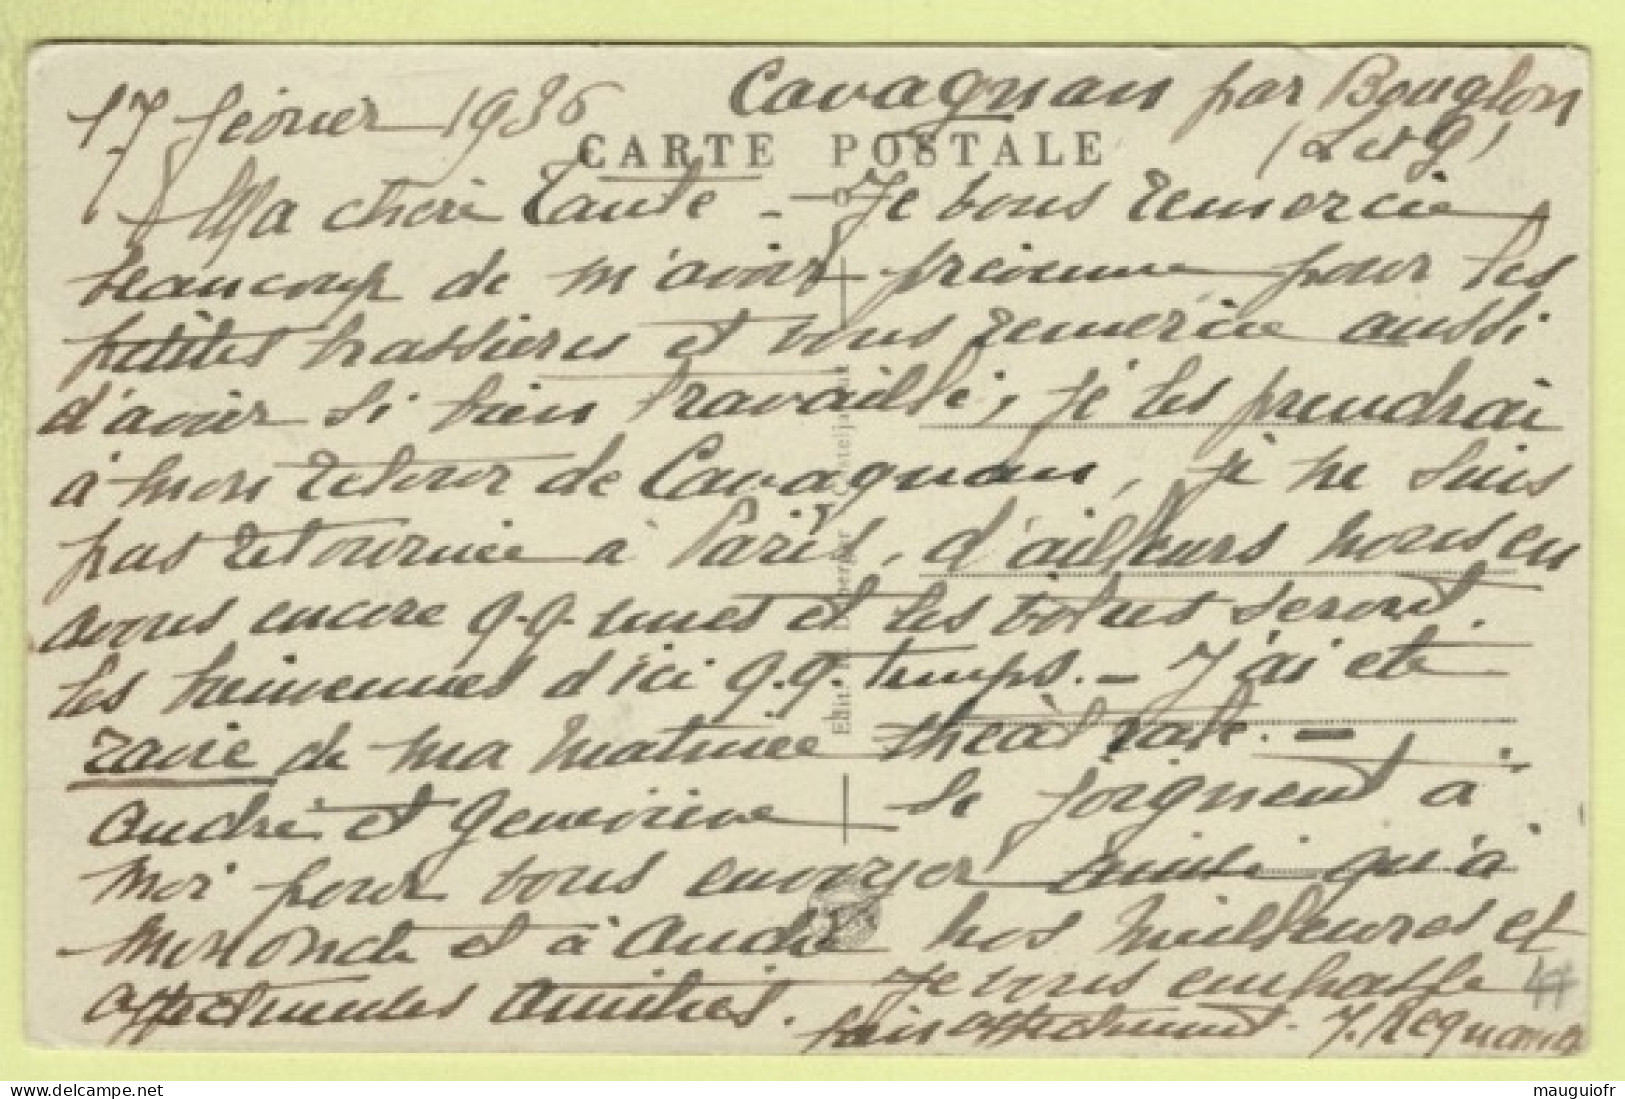 17 février 1936 Cavagnan par Bouglon
(L et G)
CARTE POSTALE
Ma chère Tante - Je vous remercie
beaucoup de m'avoir prévenue pour les
petites brassières et vous remercie aussi
d'avoir si bien travaillé, je les prendrai
à mon retour de Cavagnan, je ne suis
pas retournée à Paris, d'ailleurs nous en
avons encore q.q. unes et les vôtres seront
les bienvenues d'ici q.q. temps. - J'ai été
ravie de ma matinée théâtrale. -
André et Geneviève se joignent à
moi pour vous envoyer ainsi qu'à
mon oncle et à André nos meilleures et
affectueuses amitiés. Je vous embrasse
bien affectueusement. J.
44
Edit.
mauguiofr